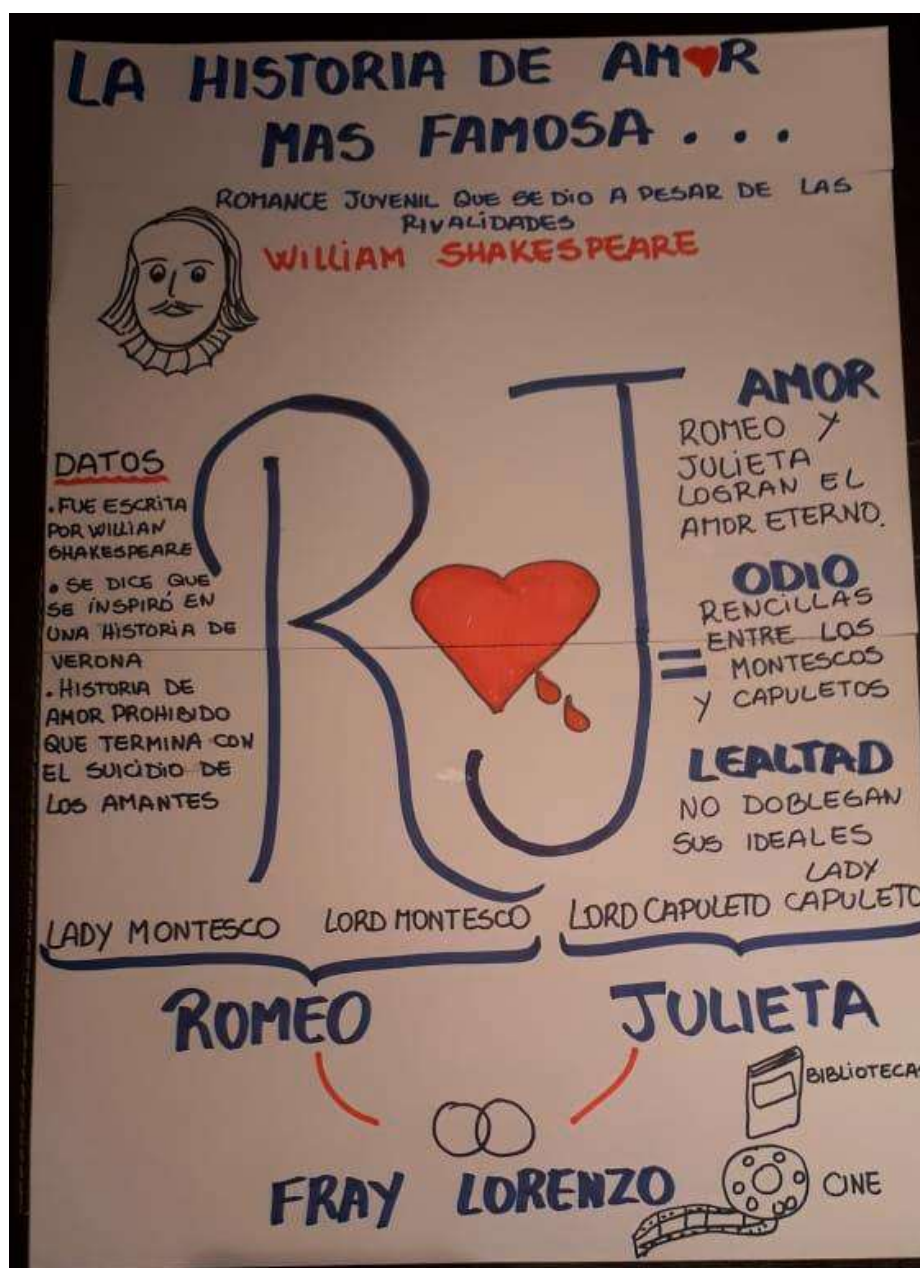 LA HISTORIA DE AMOR
MAS FAMOSA...
ROMANCE JUVENIL QUE SE DIO A PESAR DE LAS
RIVALIDADES
WILLIAM SHAKESPEARE
DATOS
• FUE ESCRITA
POR WILLIAN
SHAKESPEARE
• SE DICE QUE
SE INSPIRÓ EN
UNA HISTORIA DE
VERONA
• HISTORIA DE
AMOR PROHIBIDO
QUE TERMINA CON
EL SUICIDIO DE
LOS AMANTES
R J
AMOR
ROMEO Y
JULIETA
LOGRAN EL
AMOR ETERNO.
ODIO
RENCILLAS
= ENTRE LOS
MONTESCOS
Y CAPULETOS
LEALTAD
NO DOBLEGAN
SUS IDEALES
LADY MONTESCO LORD MONTESCO
LORD CAPULETO LADY
CAPULETO
ROMEO JULIETA
FRAY LORENZO
BIBLIOTECAS
CINE